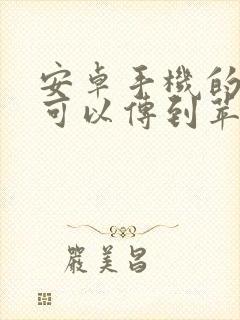 安卓手機的
可以傳到苹
嚴美昌